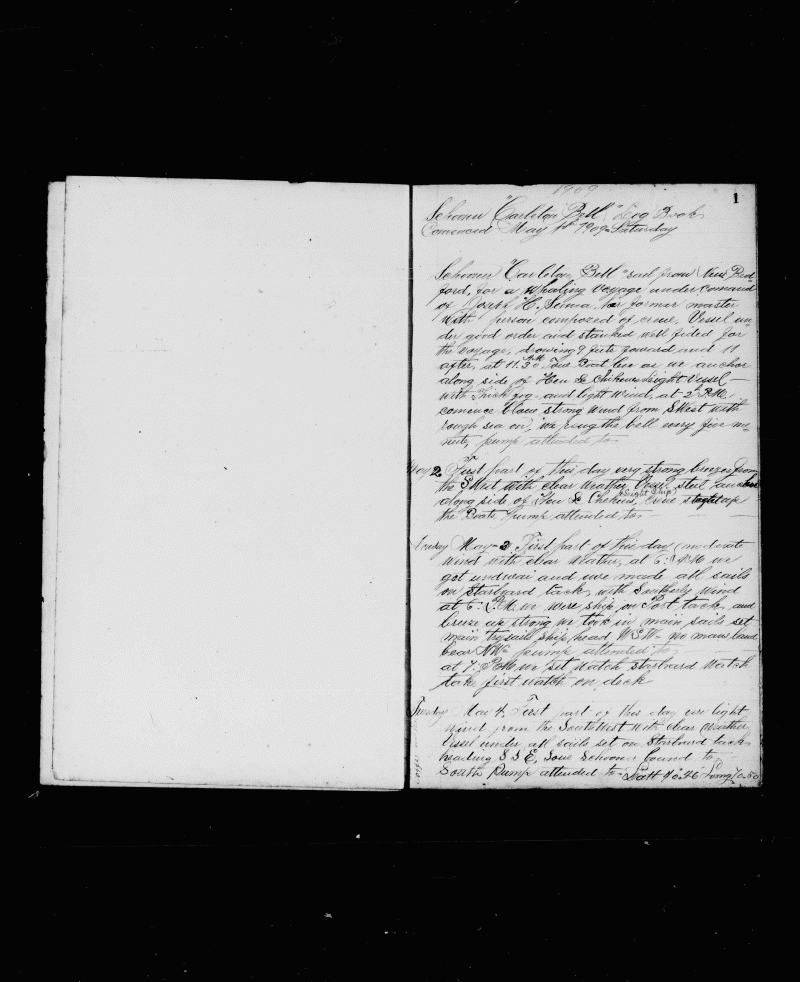 1909
1
Schooner "Carleton Bell" Log Book
Comenced May 1st 1909 Saturday
Schooner "Carleton Bell" sail from New Bed
ford, for a whaling voyage under comand
of Joseph H. Senna, her former master
with person compozed of crew, Vessel un
der good order and stanked well fided for
the voyage, drowing 9 feets foward and 11
after, at 11.30 AM Tow Boat lev as we anchor
along side of Hen & Chikens Light Vessel —
with Thick fog and light wind, at 2 P.M.
comence blow strong wind from SWest with
rough sea on, we ring the bell every five me
nuts, pump attended to
May 2 First part of this day very strong breezes from
the SWest with clear weather, Vessel steel anchor
along side of Hen & Chekens, (Light Ship)
the Boats Pump attended to
May 3 First part of this day moderate
wind with clear weather, at 6: we
got undwai and we made all sails
on Starboard tack, with Southerly wind
at 6: P.M. we were ship on Port tack, and
breeze up strong we took in main sails set
main trysails, ship head WSW no mans land
bear NW pump attended to
at 7: P.M. we set watch starboard watch
take first watch on deck
Tuesday May 4, First part of this day are light
wind from the SouthWest with clear weather,
Vessel under all sails set on Starboard tack
heading S S E, Some Schooners bound to
South Pump attended to Latt 40.46 Long 70.50